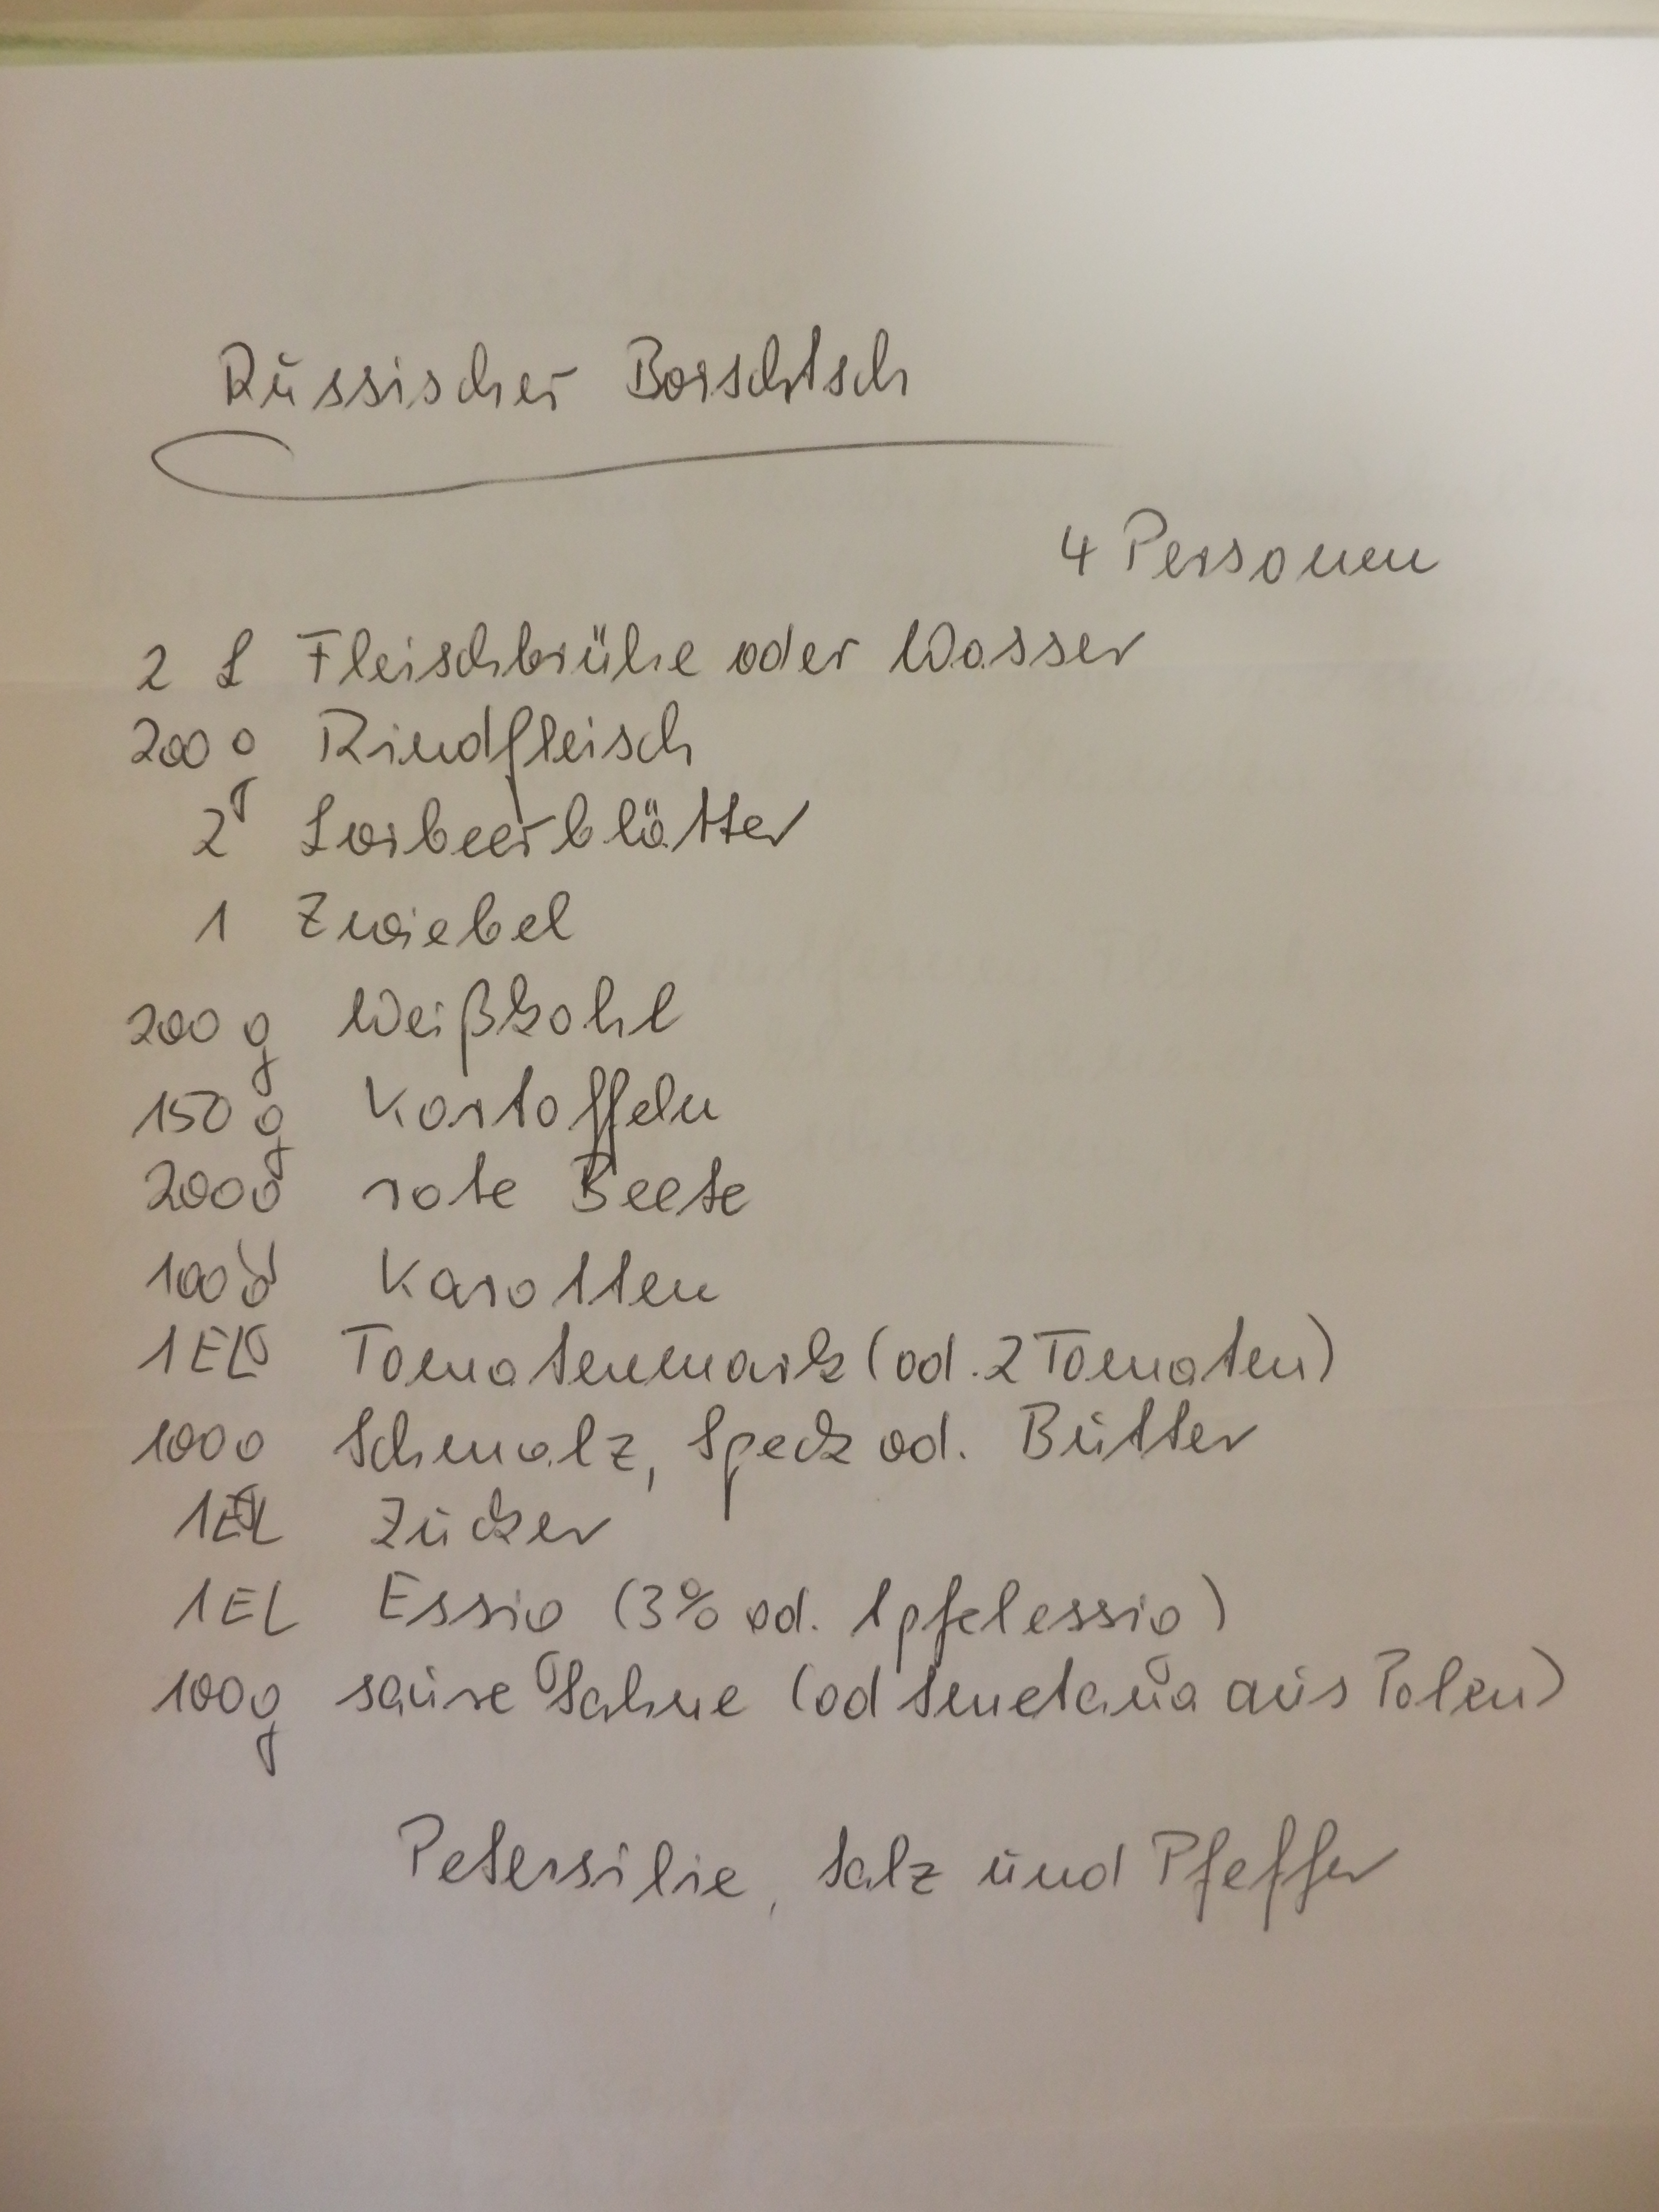 Russischer Borschtsch
4 Personen
2 L Fleischbrühe oder Wasser
200 g Rindfleisch
2 Lorbeerblätter
1 Zwiebel
200 g Weißkohl
150 g Kartoffeln
200 g rote Beete
100 g Karotten
1 EL Tomatenmark (od. 2 Tomaten)
100 g Schmalz, Speck od. Butter
1 EL Zucker
1 EL Essig (3% od. Apfelessig)
100 g saure Sahne (od Smetana aus Polen)
Petersilie, Salz und Pfeffer